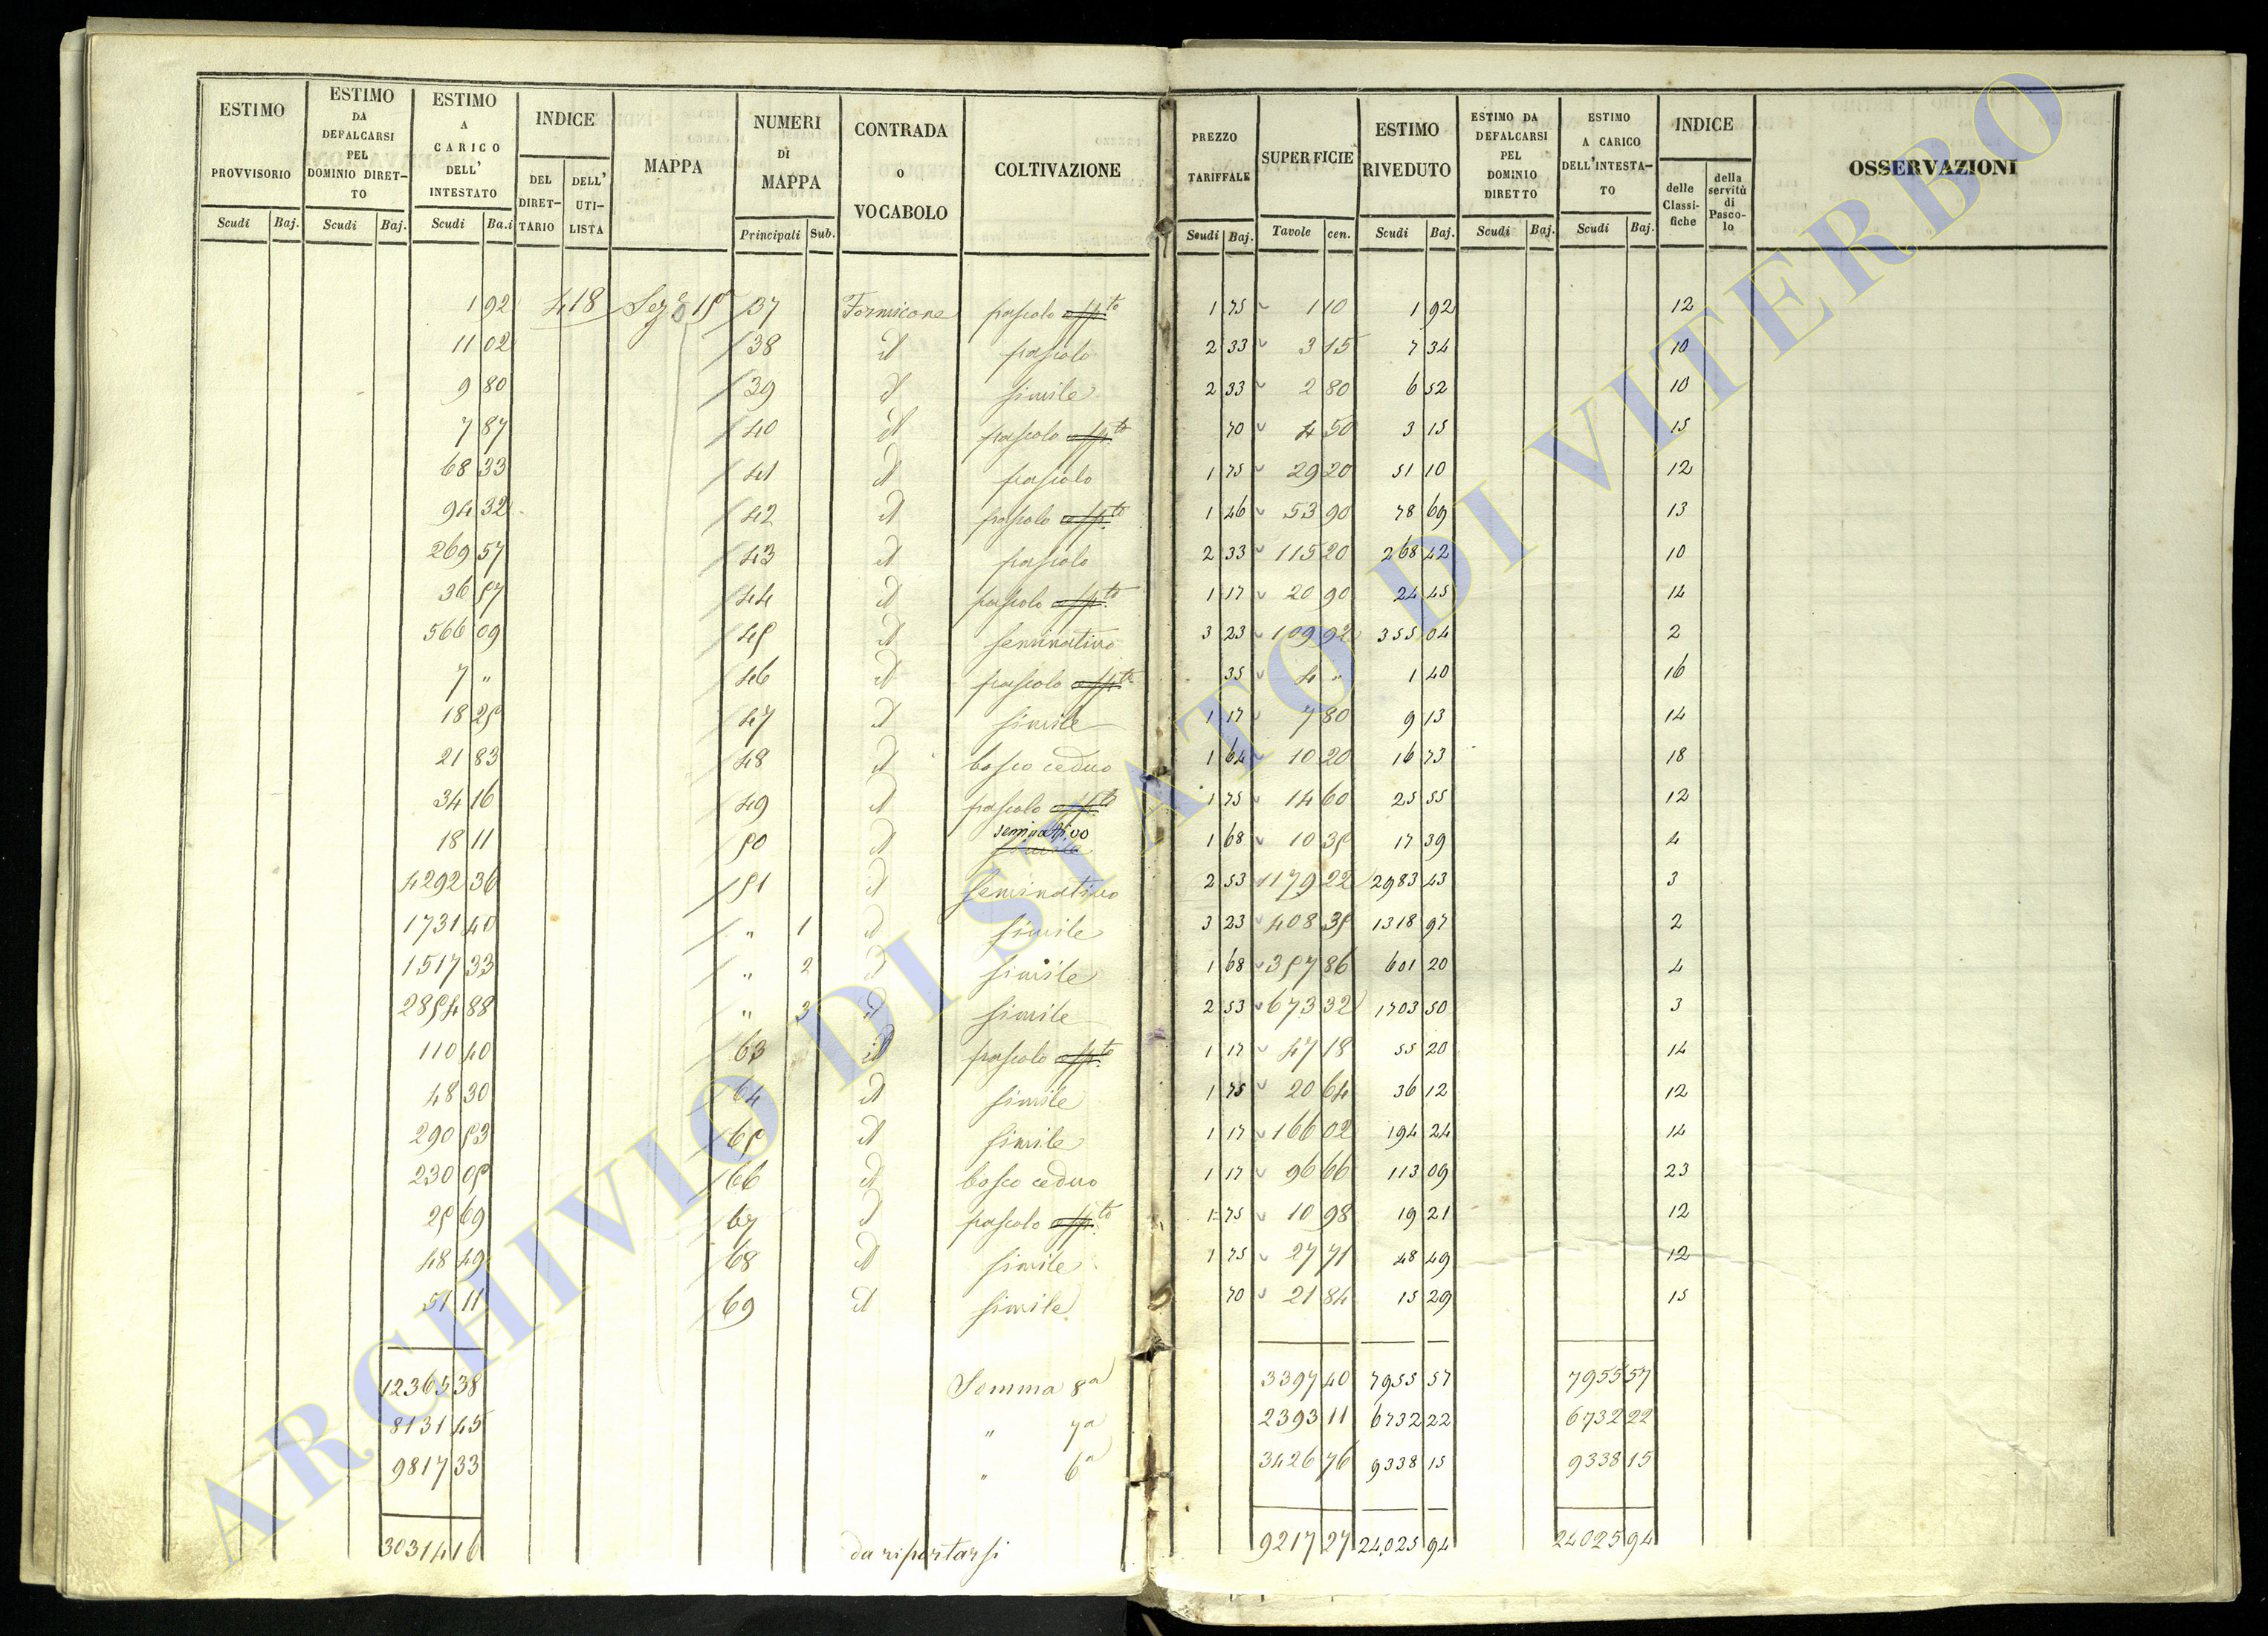 ESTIMO PROVVISORIO Scudi Baj. ESTIMO DA DEFALCARSI PEL DOMINIO DIRET-TO Scudi Baj. ESTIMO A CARICO DELL' INTESTATO Scudi Ba.i INDICE DEL DIRET-TARIO DELL' UTI-LISTA MAPPA NUMERI DI MAPPA Principali Sub. CONTRADA O VOCABOLO COLTIVAZIONE PREZZO TARIFFALE Scudi Baj. SUPERFICIE Tavole cen. ESTIMO RIVEDUTO Scudi Baj. ESTIMO DA DEFALCARSI PEL DOMINIO DIRETTO Scudi Baj. ESTIMO A CARICO DELL'INTESTA-TO Scudi Baj. INDICE delle Classi-fiche della servitù di Pasco-lo OSSERVAZIONI
1 92 418 Sez 15 37 Formicone pascolo app.to 1 75 1 10 1 92 12
11 02 38 id pascolo 2 33 3 15 7 34 10
9 80 39 id simile 2 33 2 80 6 52 10
7 87 40 id pascolo app.to 70 4 50 3 15 15
68 33 41 id pascolo 1 75 29 20 51 10 12
94 32 42 id pascolo app.to 1 46 53 90 78 69 13
269 57 43 id pascolo 2 33 115 20 268 42 10
36 57 44 id pascolo app.to 1 17 20 90 24 45 14
566 09 45 id seminativo 3 23 109 92 355 04 2
7 " 46 id pascolo app.to 35 4 " 1 40 16
18 25 47 id simile 1 17 7 80 9 13 14
21 83 48 id bosco ceduo 1 64 10 20 16 73 18
34 16 49 id pascolo app.to 1 75 14 60 25 55 12
18 11 50 id seminativo simile 1 68 10 35 17 39 4
4292 36 51 id seminativo 2 53 1179 22 2983 43 3
1731 40 " 1 id simile 3 23 408 35 1318 97 2
1517 33 " 2 id simile 1 68 357 86 601 20 4
2854 88 " 3 id simile 2 53 673 32 1703 50 3
110 40 63 id pascolo app.to 1 17 47 18 55 20 14
48 30 64 id simile 1 75 20 64 36 12 12
290 53 65 id simile 1 17 166 02 194 24 14
230 05 66 id bosco ceduo 1 17 96 66 113 09 23
25 69 67 id pascolo app.to 1 75 10 98 19 21 12
48 49 68 id simile 1 75 27 71 48 49 12
51 11 69 id simile 70 21 84 15 29 15
12365 38 Somma 8a 3397 40 7955 57 7955 57
8131 45 " 7a 2393 11 6732 22 6732 22
9817 33 " 6a 3426 76 9338 15 9338 15
30314 16 da riportarsi 9217 27 24,025 94 24025 94
ARCHIVIO DI STATO DI VITERBO